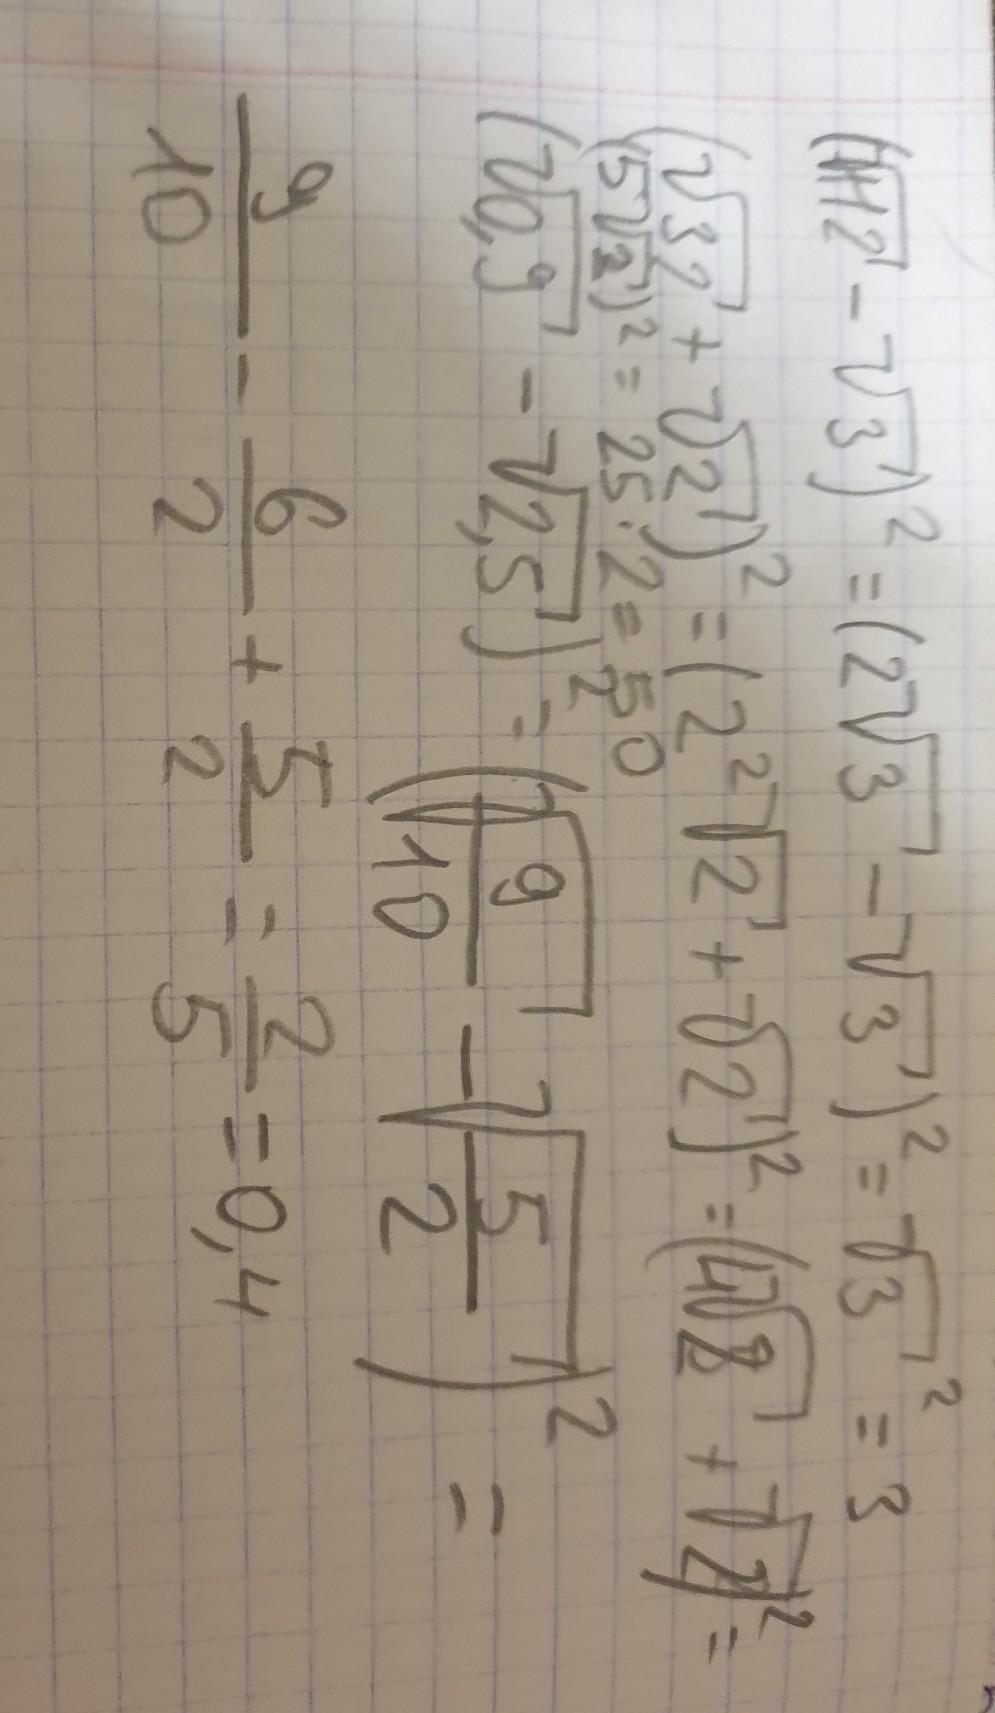 (√12 - √3)² = (2√3 - √3)² = √3² = 3
(√32 + √2)² = (2²√2 + √2)² = (4√2 + √2)² =
(5√2)² = 25 · 2 = 50
(√0,9 - √2,5)² = (√9/10 - √5/2)² =
9/10 - 6/2 + 5/2 = 2/5 = 0,4